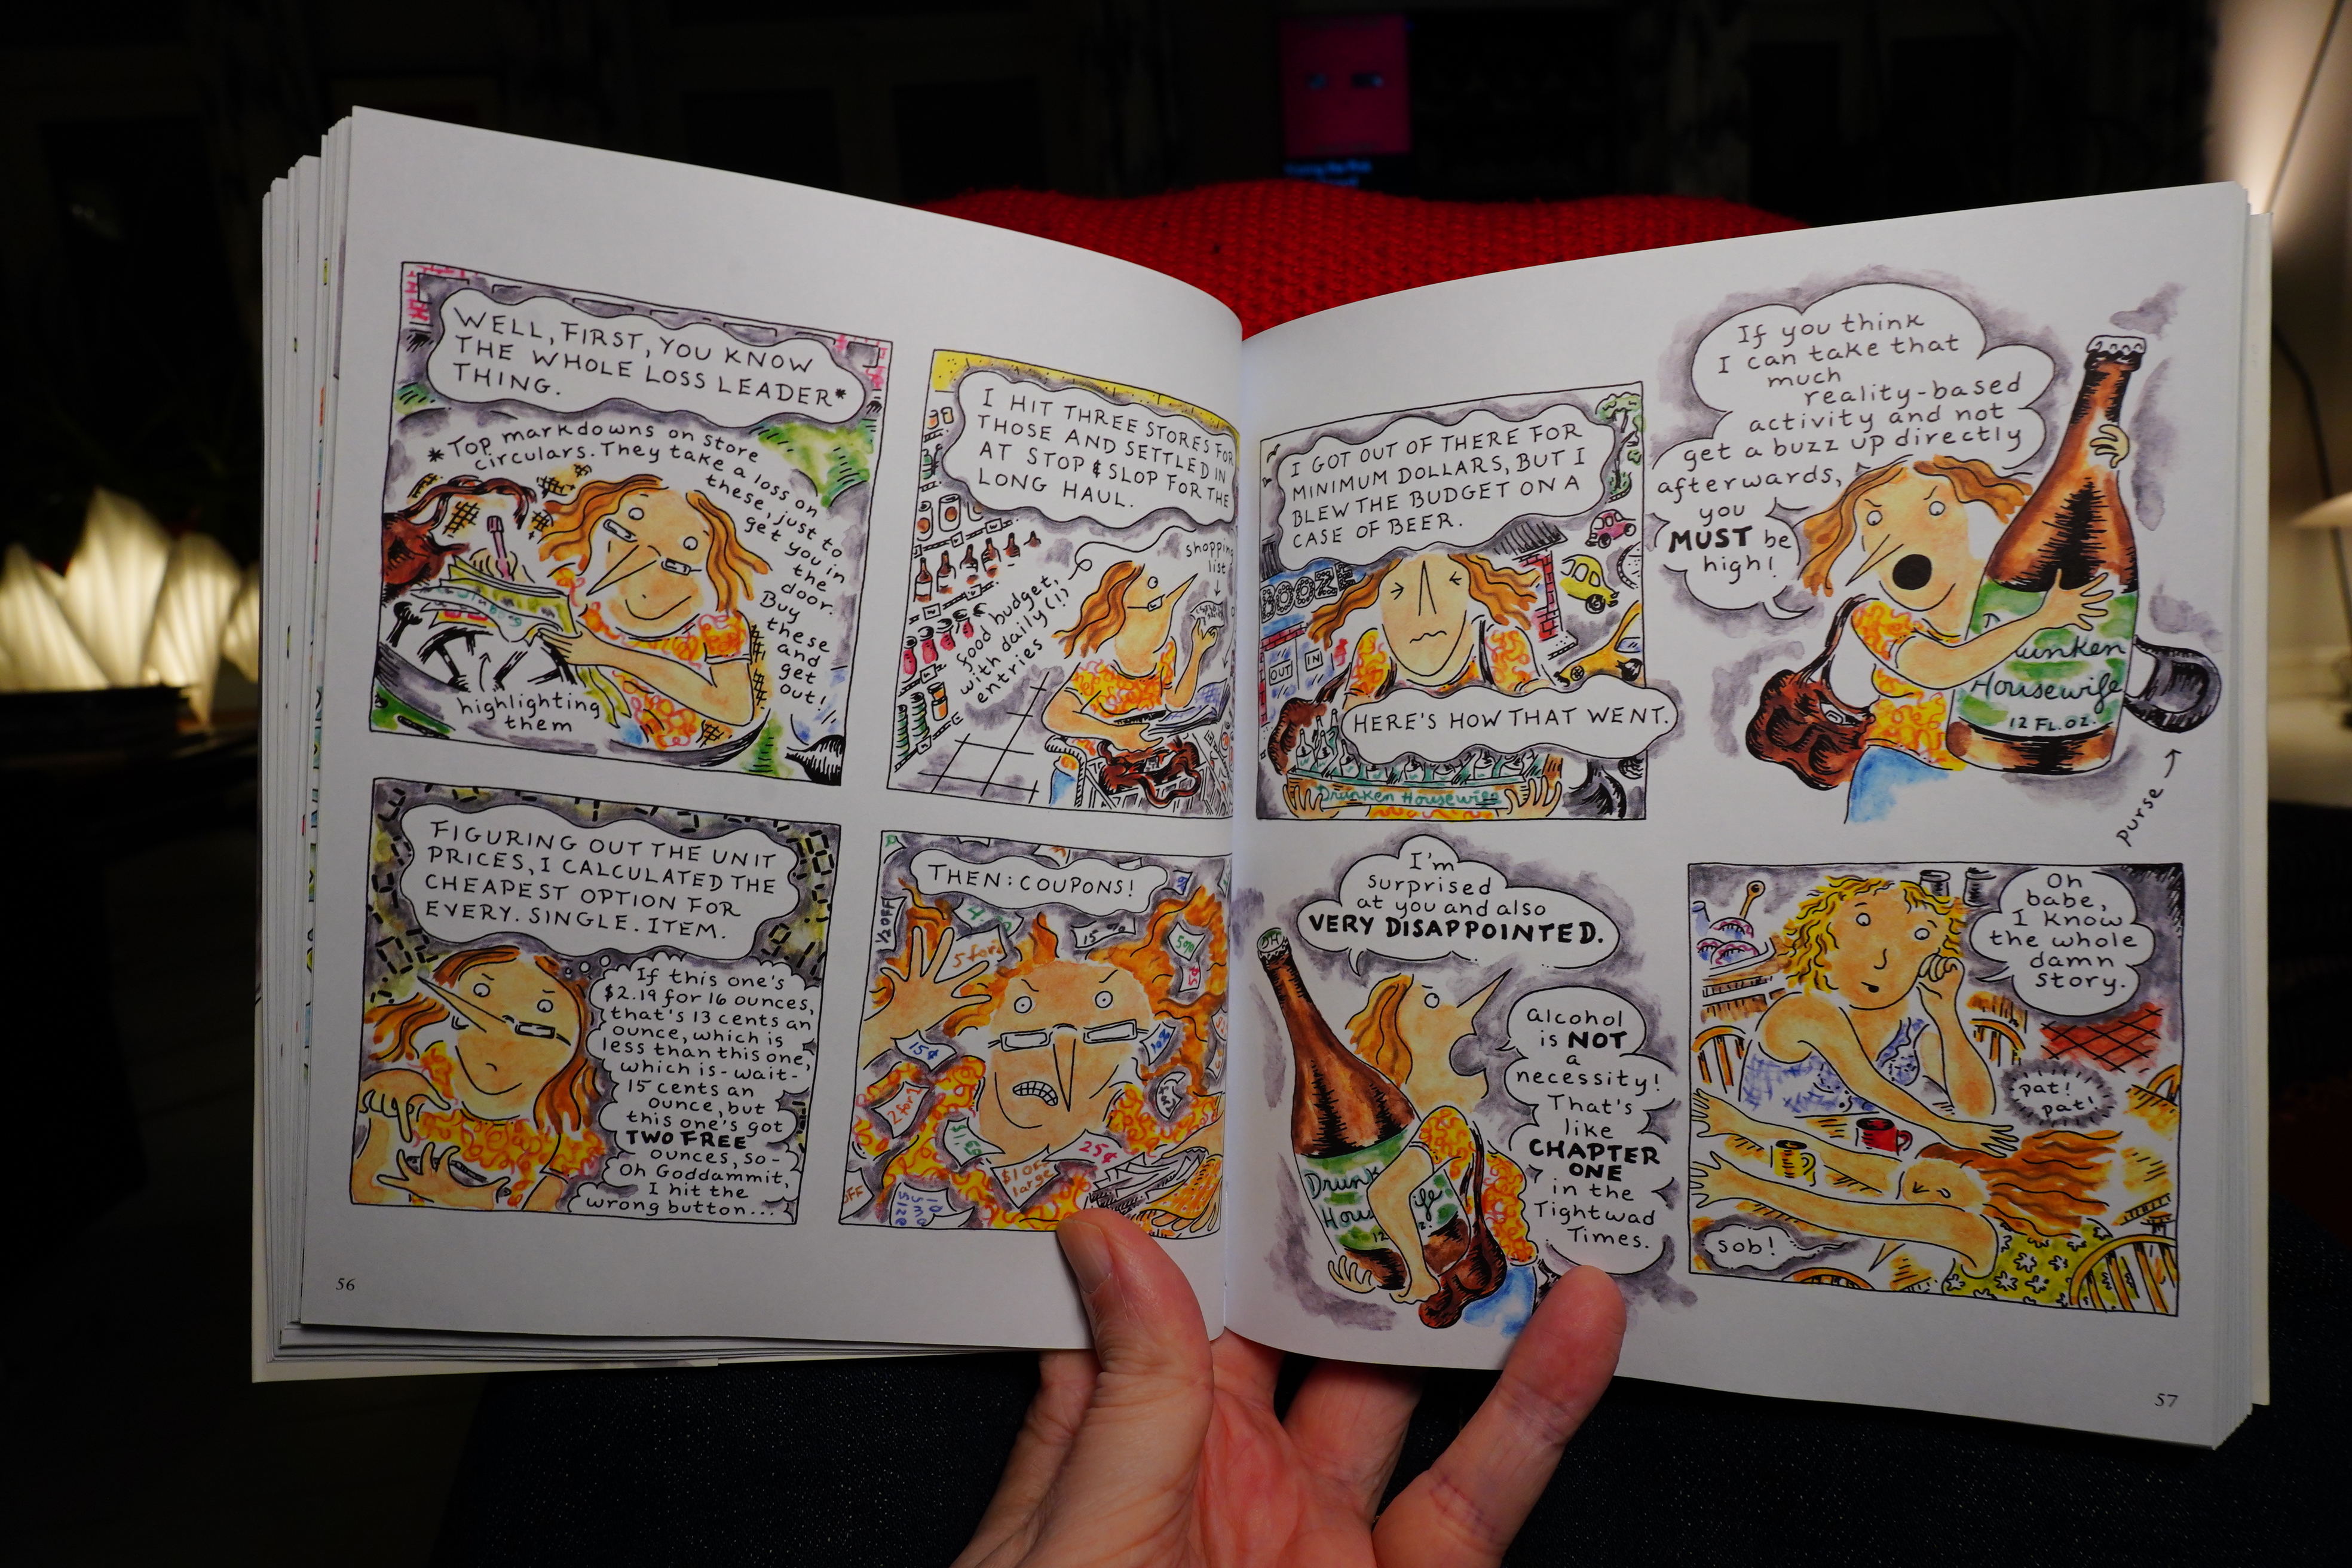 WELL, FIRST, YOU KNOW
THE WHOLE LOSS LEADER*
THING.
*Top markdowns on store
circulars. They take a loss on
these, just to
get you in
the
door.
Buy
these
and
get
out!
highlighting
them
I HIT THREE STORES FOR
THOSE AND SETTLED IN
AT STOP & SLOP FOR THE
LONG HAUL.
shopping
list
food budget,
with daily(!)
entries
FIGURING OUT THE UNIT
PRICES, I CALCULATED THE
CHEAPEST OPTION FOR
EVERY. SINGLE. ITEM.
If this one's
$2.19 for 16 ounces,
that's 13 cents an
ounce, which is
less than this one,
which is-wait-
15 cents an
ounce, but
this one's got
TWO FREE
ounces, so-
Oh Goddammit,
I hit the
wrong button...
THEN: COUPONS!
1/2 OFF
5 for
15¢
2 for 1
$1 off
large
25¢
OFF
56
I GOT OUT OF THERE FOR
MINIMUM DOLLARS, BUT I
BLEW THE BUDGET ON A
CASE OF BEER.
BOOZE
OUT
IN
HERE'S HOW THAT WENT.
Drunken Housewife
If you think
I can take that
much
reality-based
activity and not
get a buzz up directly
afterwards,
you
MUST be
high!
Drunken
Housewife
12 FL. OZ.
purse
I'm
surprised
at you and also
VERY DISAPPOINTED.
Alcohol
is NOT
a
necessity!
That's
like
CHAPTER
ONE
in the
Tightwad
Times.
Drunk
Hou
ife
12
Oh
babe,
I know
the whole
damn
story.
pat!
pat!
sob!
57